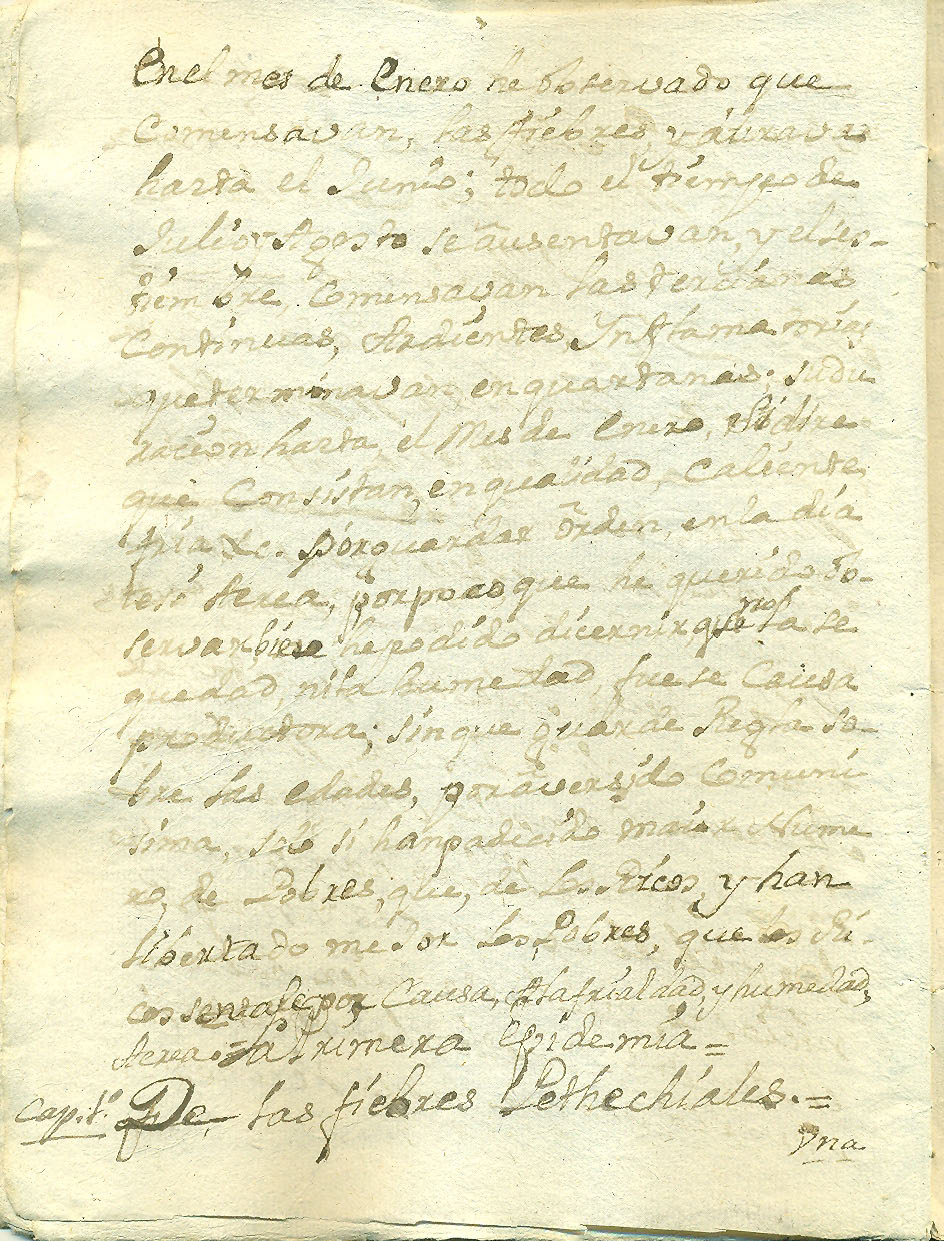 En el mes de Enero he observado que
Comensavan, las fiebres, y durava
hasta el Junio; todo el tiempo de
Julio y Agosto se ausentavan, y el Sep-
tiembre, Comensavan las tercianas
Continuas, Ardientes, Inflamatorias,
que terminavan en quartanas; su du
racion hasta el Mes de Enero,
que Consistan, en qualidad, Caliente,
fria &c. por guardar orden, en la dia
Aerea, por poco, que he querido ob-
servar, bien he podido dicernir, que no la se
quedad, ni la humedad, fuese Causa
productora; sin que guarde Regla so-
bre las edades, por aver sido Comuni
sima, solo si han padecido maior Nume
ro, de Pobres, que, de Los Ricos, y han
libertado mejor Los Pobres, que los Ri-
cos por Causa, A la frialdad, y humedad,
Aerea = La Primera Epidemia =
Cap.t.o De las fiebres Pethechiales. =
Vna